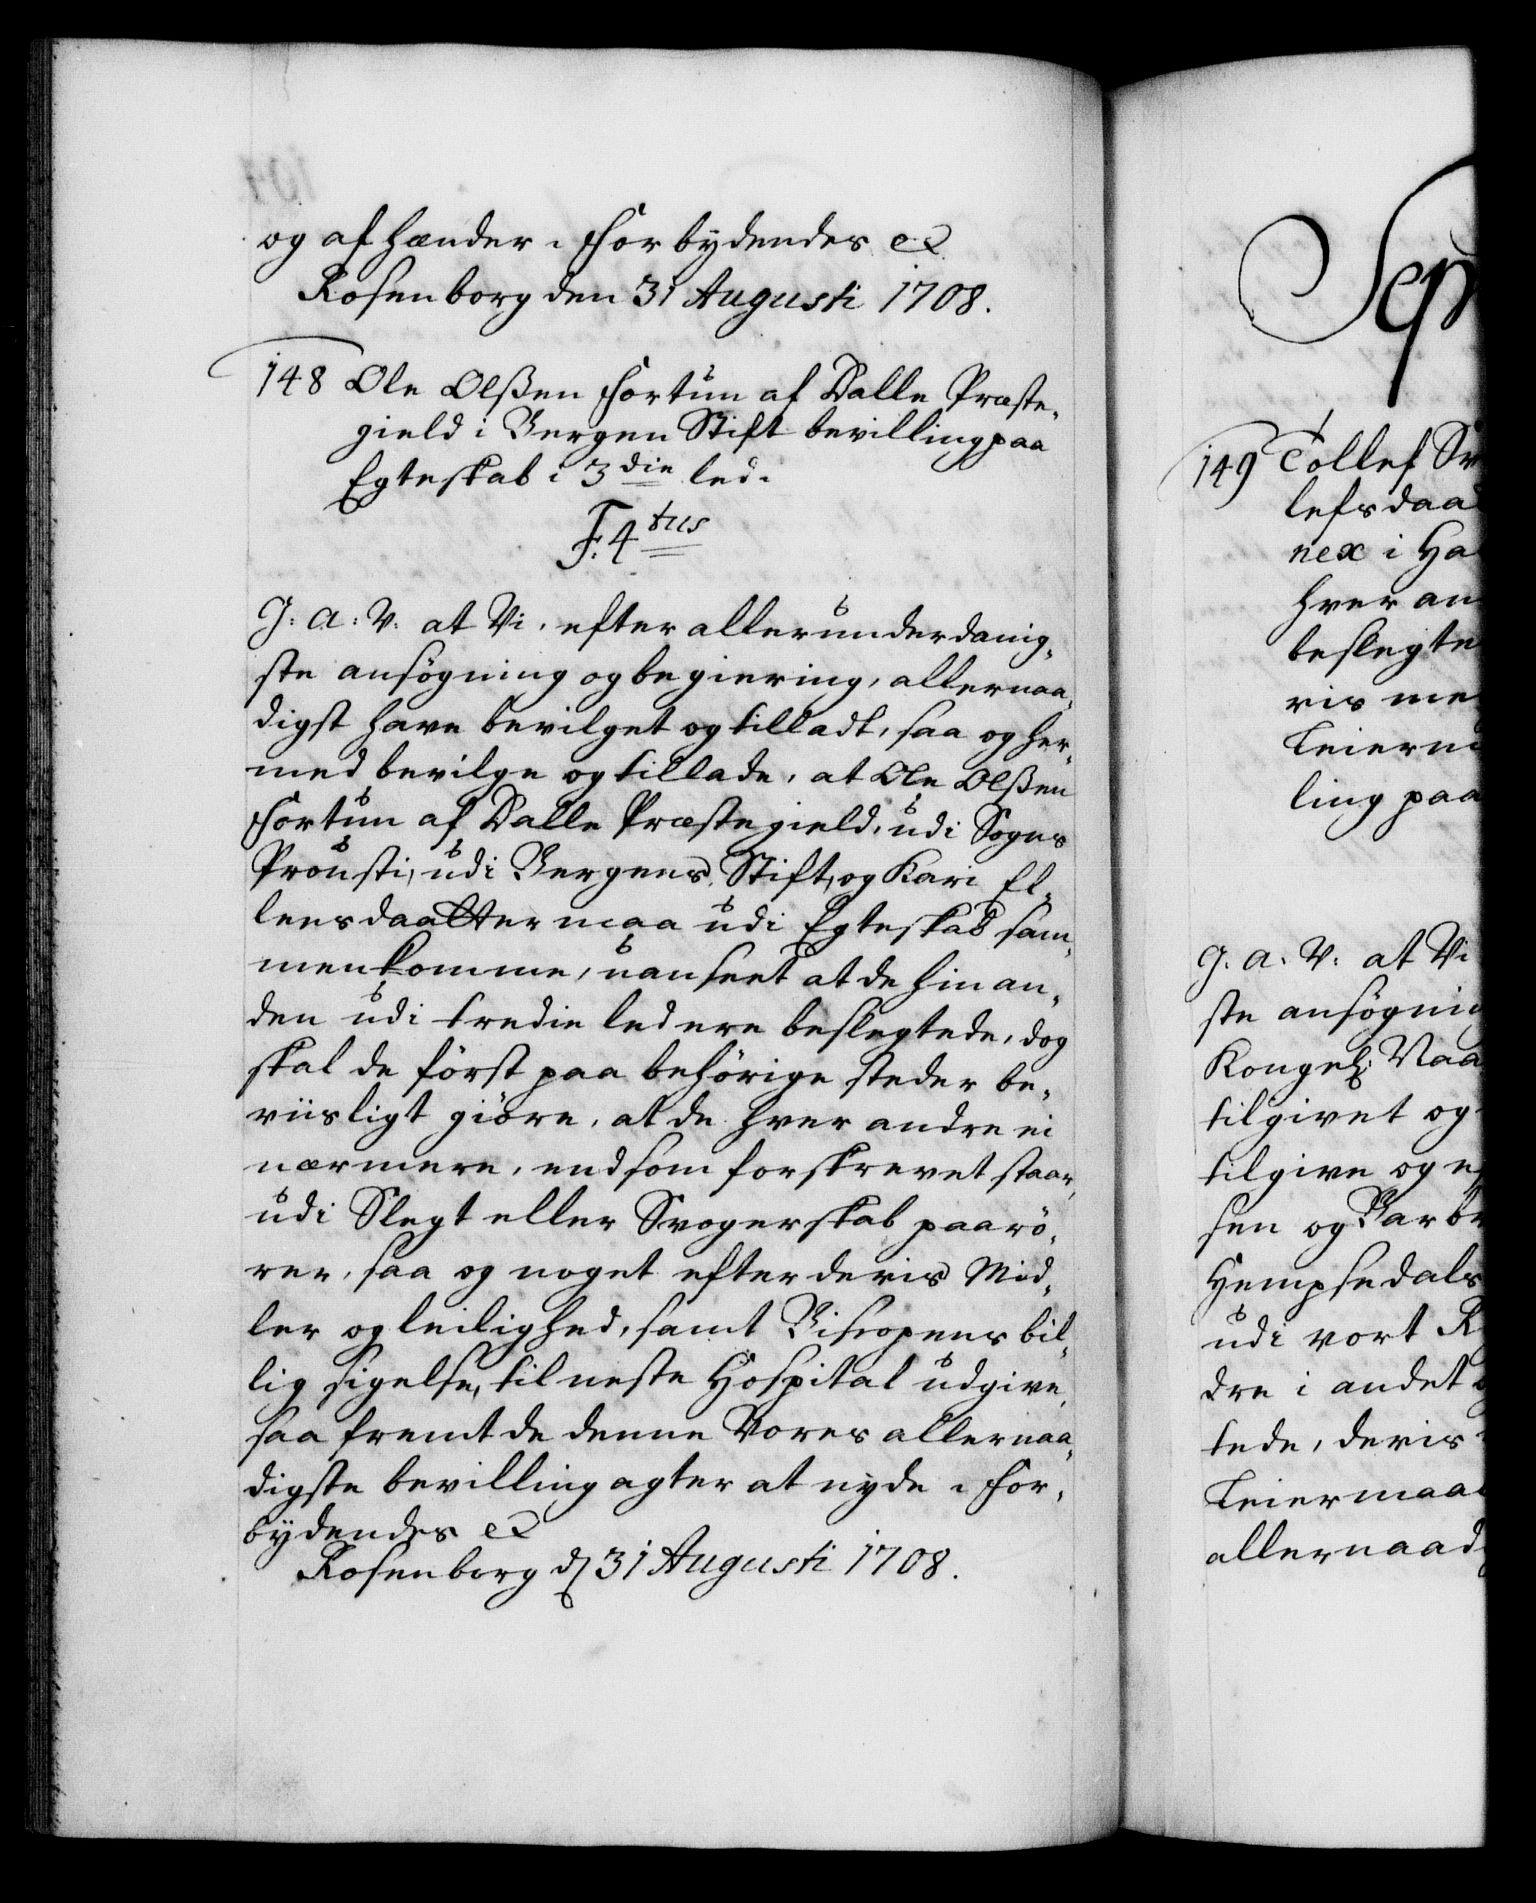 og af hænder. Forbydendes &
Rosenborg den 31 Augusti 1708.
148 Ole Olßen Fortun af Dalle Præste-
gield i Bergen Stift bevilling paa
Egteskab i 3die led.
F. 4tus
G: A: V: at Vi, efter allerunderdanig-
ste ansøgning og begiering, allernaa-
digst have bevilget og tilladt, saa og her-
med bevilge og tillade, at Ole Olßen
Fortun af Dalle Præstegield, udi Sogns
Prousti, udi Bergens Stift, og Kari El-
lensdaatter maa udi Egteskab sam-
menkomme, uanseet at de hinan-
den udi tredie led ere beslegtede, dog
skal de först paa behörige steder be-
viisligt giöre, at de hver andre ei
nærmere, end som forskrevet staar,
udi Slegt eller Svogerskab paarö-
rer, saa og noget efter deris Mid-
ler og leilighed, samt Biscopens bil-
lig sigelse, til neste Hospital udgive,
saa fremt de denne Vores allernaa-
digste bevilling agter at nyde. For-
bydendes &
Rosenborg d 31 Augusti 1708.
Sep
149 Tollef Sv
lefsdaa
nex i Ha
hver an
beslegte
ris me
Leierm
ling paa
G. A. V: at Vi
ste ansøgni
Kongel: Naa
tilgivet og
tilgive og e
sen og Barbr
Hempsedals
udi vort R
dre i andet
tede, deris
Leiermaal
allernaad